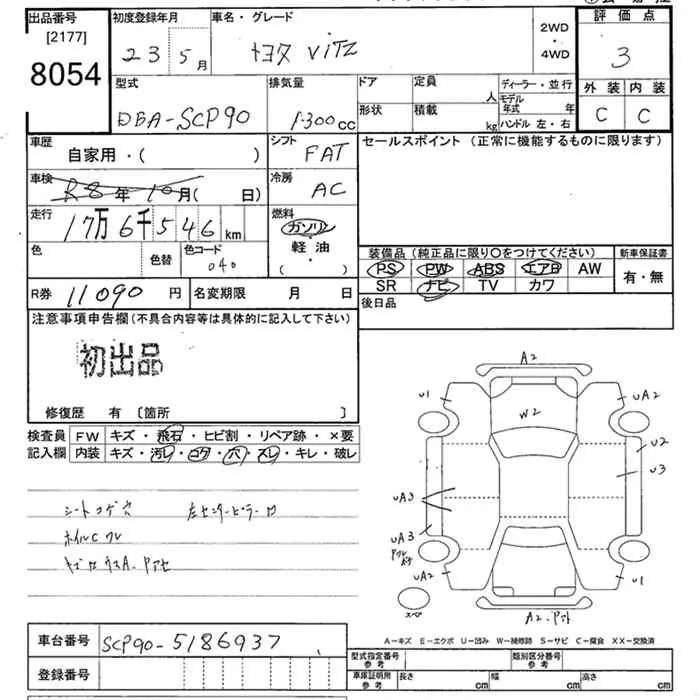 出品番号
[2177]
8054
初度登録年月
23 5月
車名・グレード
トヨタ VITZ
2WD
・
4WD
評価点
3
外装 内装
C C
型式
DBA-SCP90
排気量
1300cc
ドア
形状
定員
人
積載
kg
ディーラー・並行
モデル年式 年
ハンドル 左・右
車歴
自家用・( )
シフト
FAT
車検
R8年10月( 日)
冷房
AC
走行
17万6千546km
燃料
ガソリン
軽・油
( ・ )
色
色替
色コード
040
R券
11090円
名変期限 月 日
セールスポイント(正常に機能するものに限ります)
装備品(純正品に限り○をつけてください)
PS PW ABS エアB AW
SR ナビ TV カワ
新車保証書
有・無
後日品
注意事項申告欄(不具合内容等は具体的に記入して下さい)
初出品
修復歴 有 〔箇所 〕
検査員記入欄
FW キズ・飛石・ヒビ割・リペア跡・×要
内装 キズ・汚レ・コゲ・穴・スレ・キレ・破レ
シートコゲ穴
ホイルC
A2
U1
UA2
W2
U2
U3
UA3
UA3
UA2
U1
スペア
A2
A－キズ E－エクボ U－凹み W－補修跡 S－サビ C－腐食 XX－交換済
車台番号
SCP90-5186937
登録番号
型式指定番号
参考
類別区分番号
参考
車庫証明所
参考
長さ cm
幅 cm
高さ cm